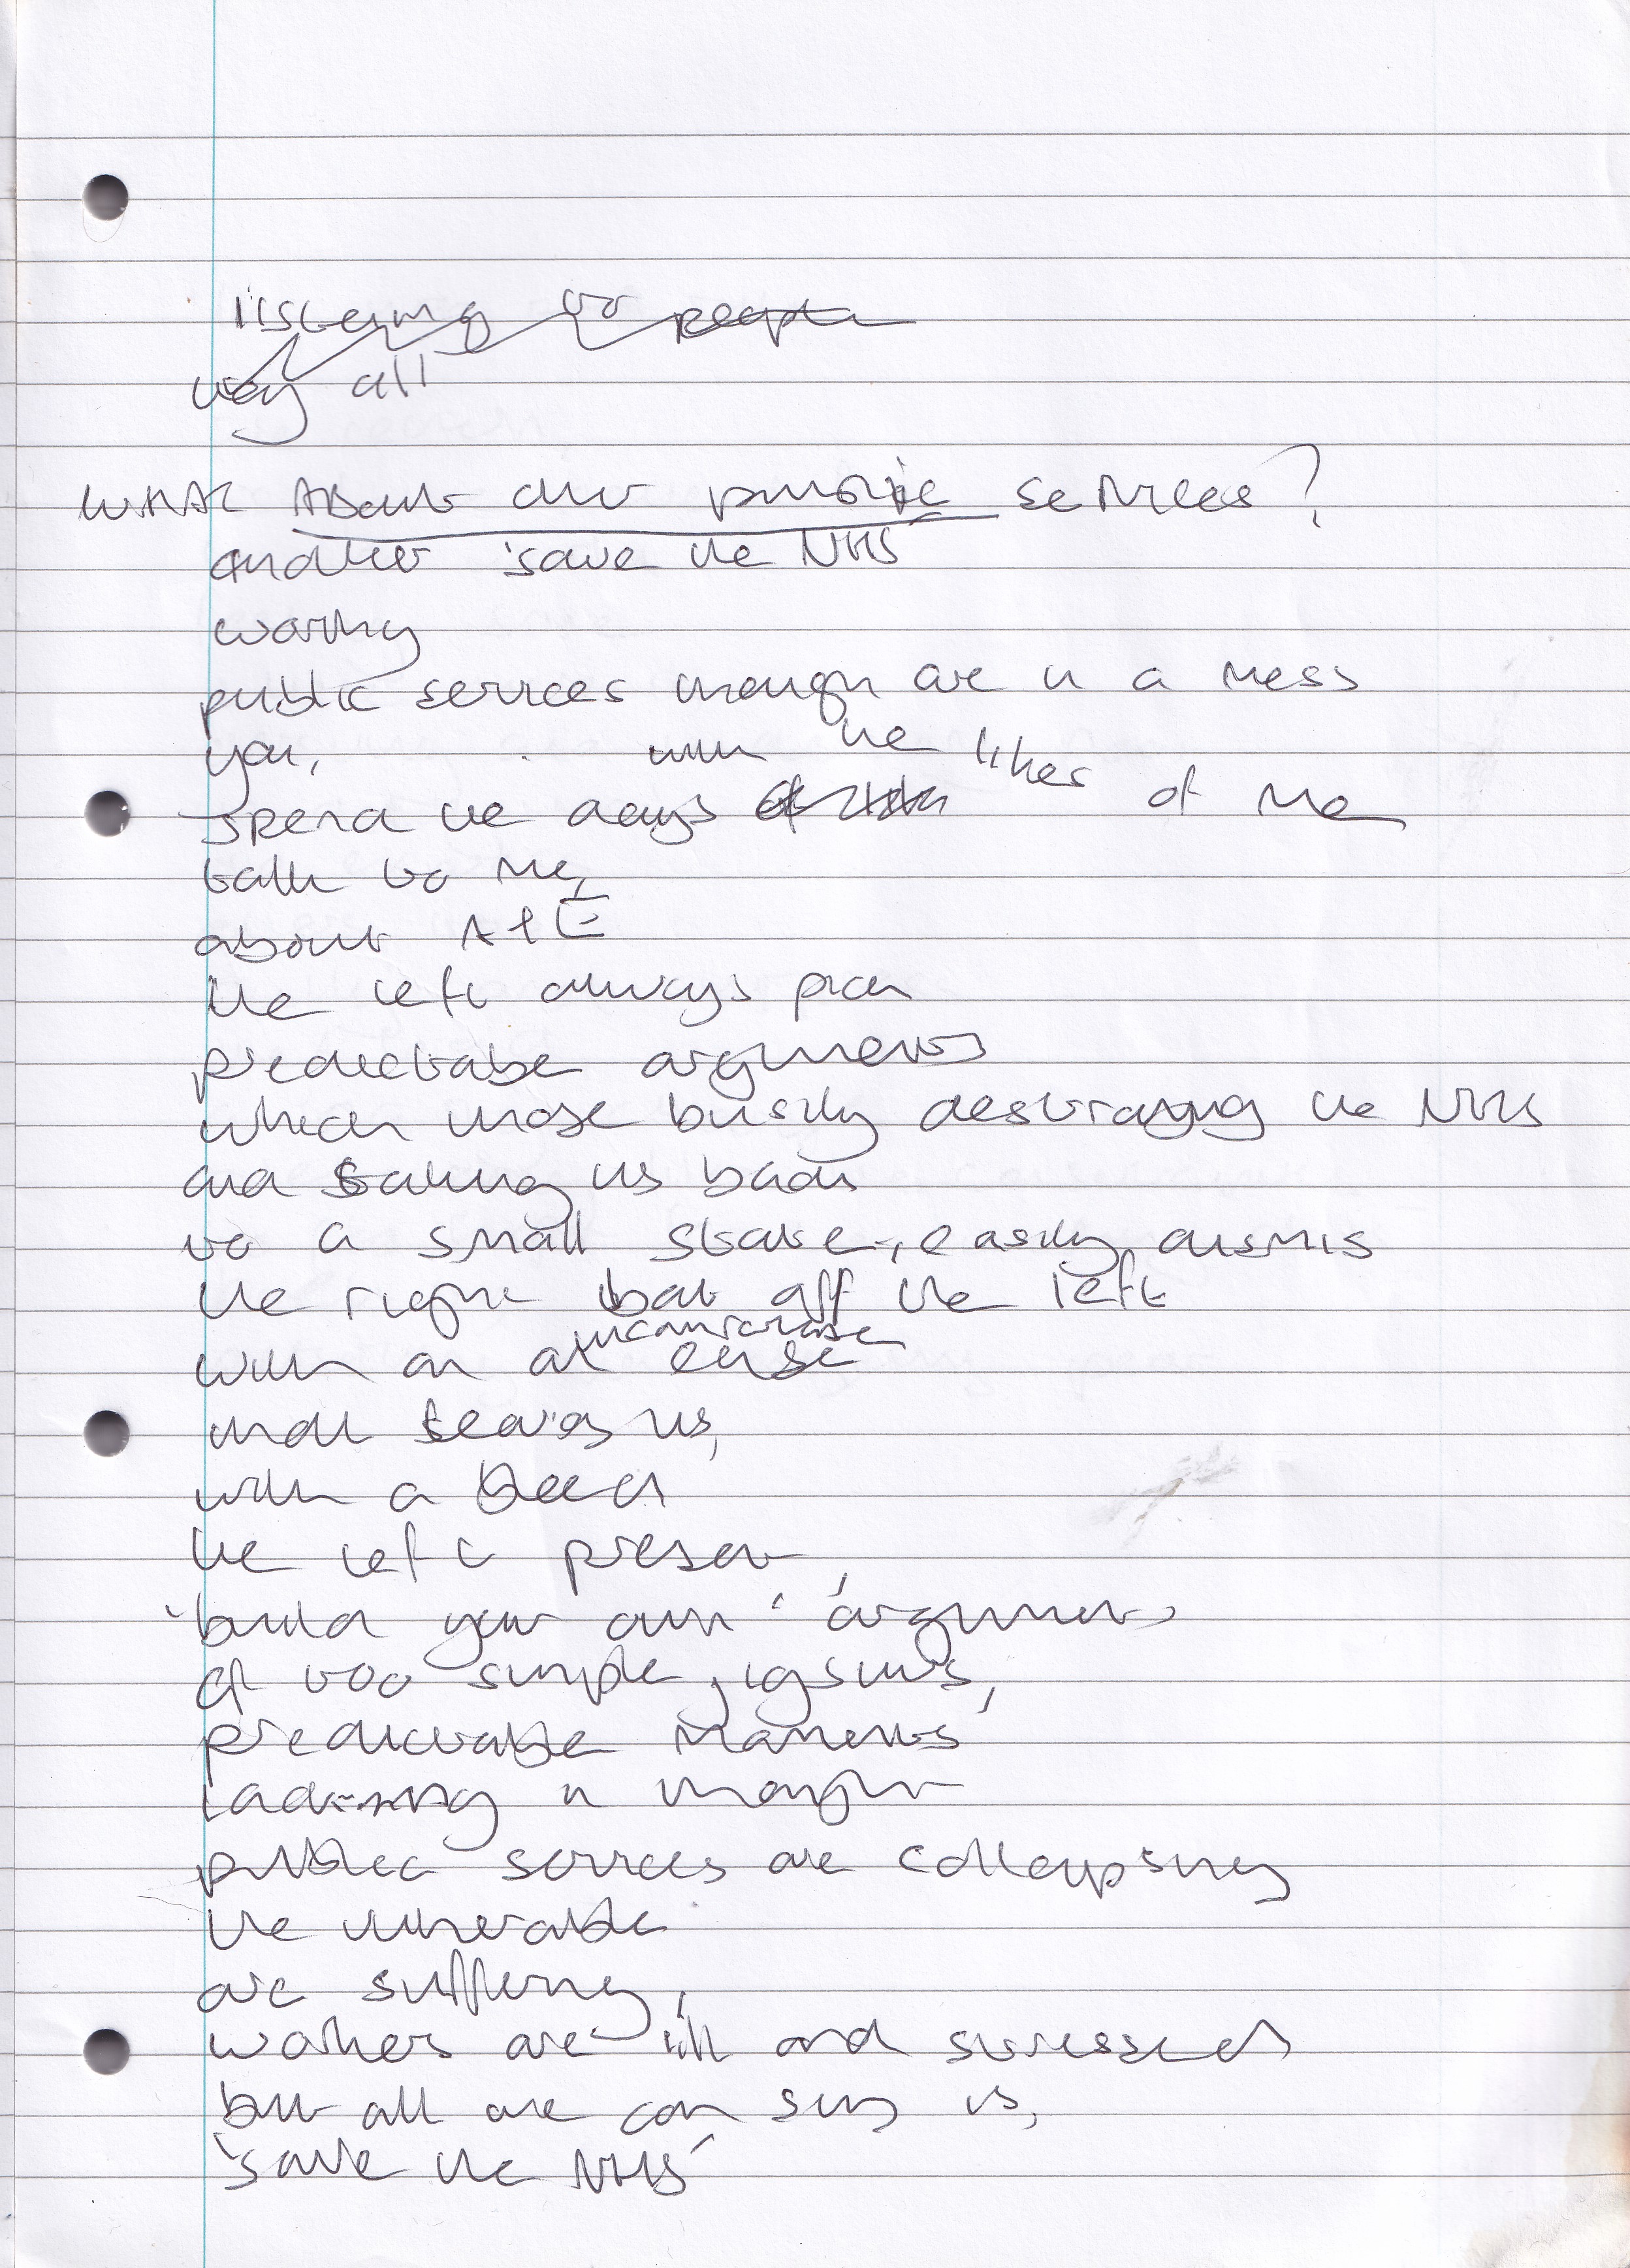 listening to people
they all
WHAT ABout our public services?
another 'save the NHS'
worthy
public services though are in a mess
you, with the likes of me
spend the days
talk to me,
about A+E
the left always pick
predictable arguments
which those busily destroying the NHS
and taking us back
to a small state, easily dismis
the right bat off the left
with an at ease
that leaves us,
with a
the left present
'build your own' arguments
of too simple jigsaws,
predictable
lacking in thought
public services are collapsing
the vulnerable
are suffering,
workers are ill and stressed
but all one can say is,
'save the NHS'